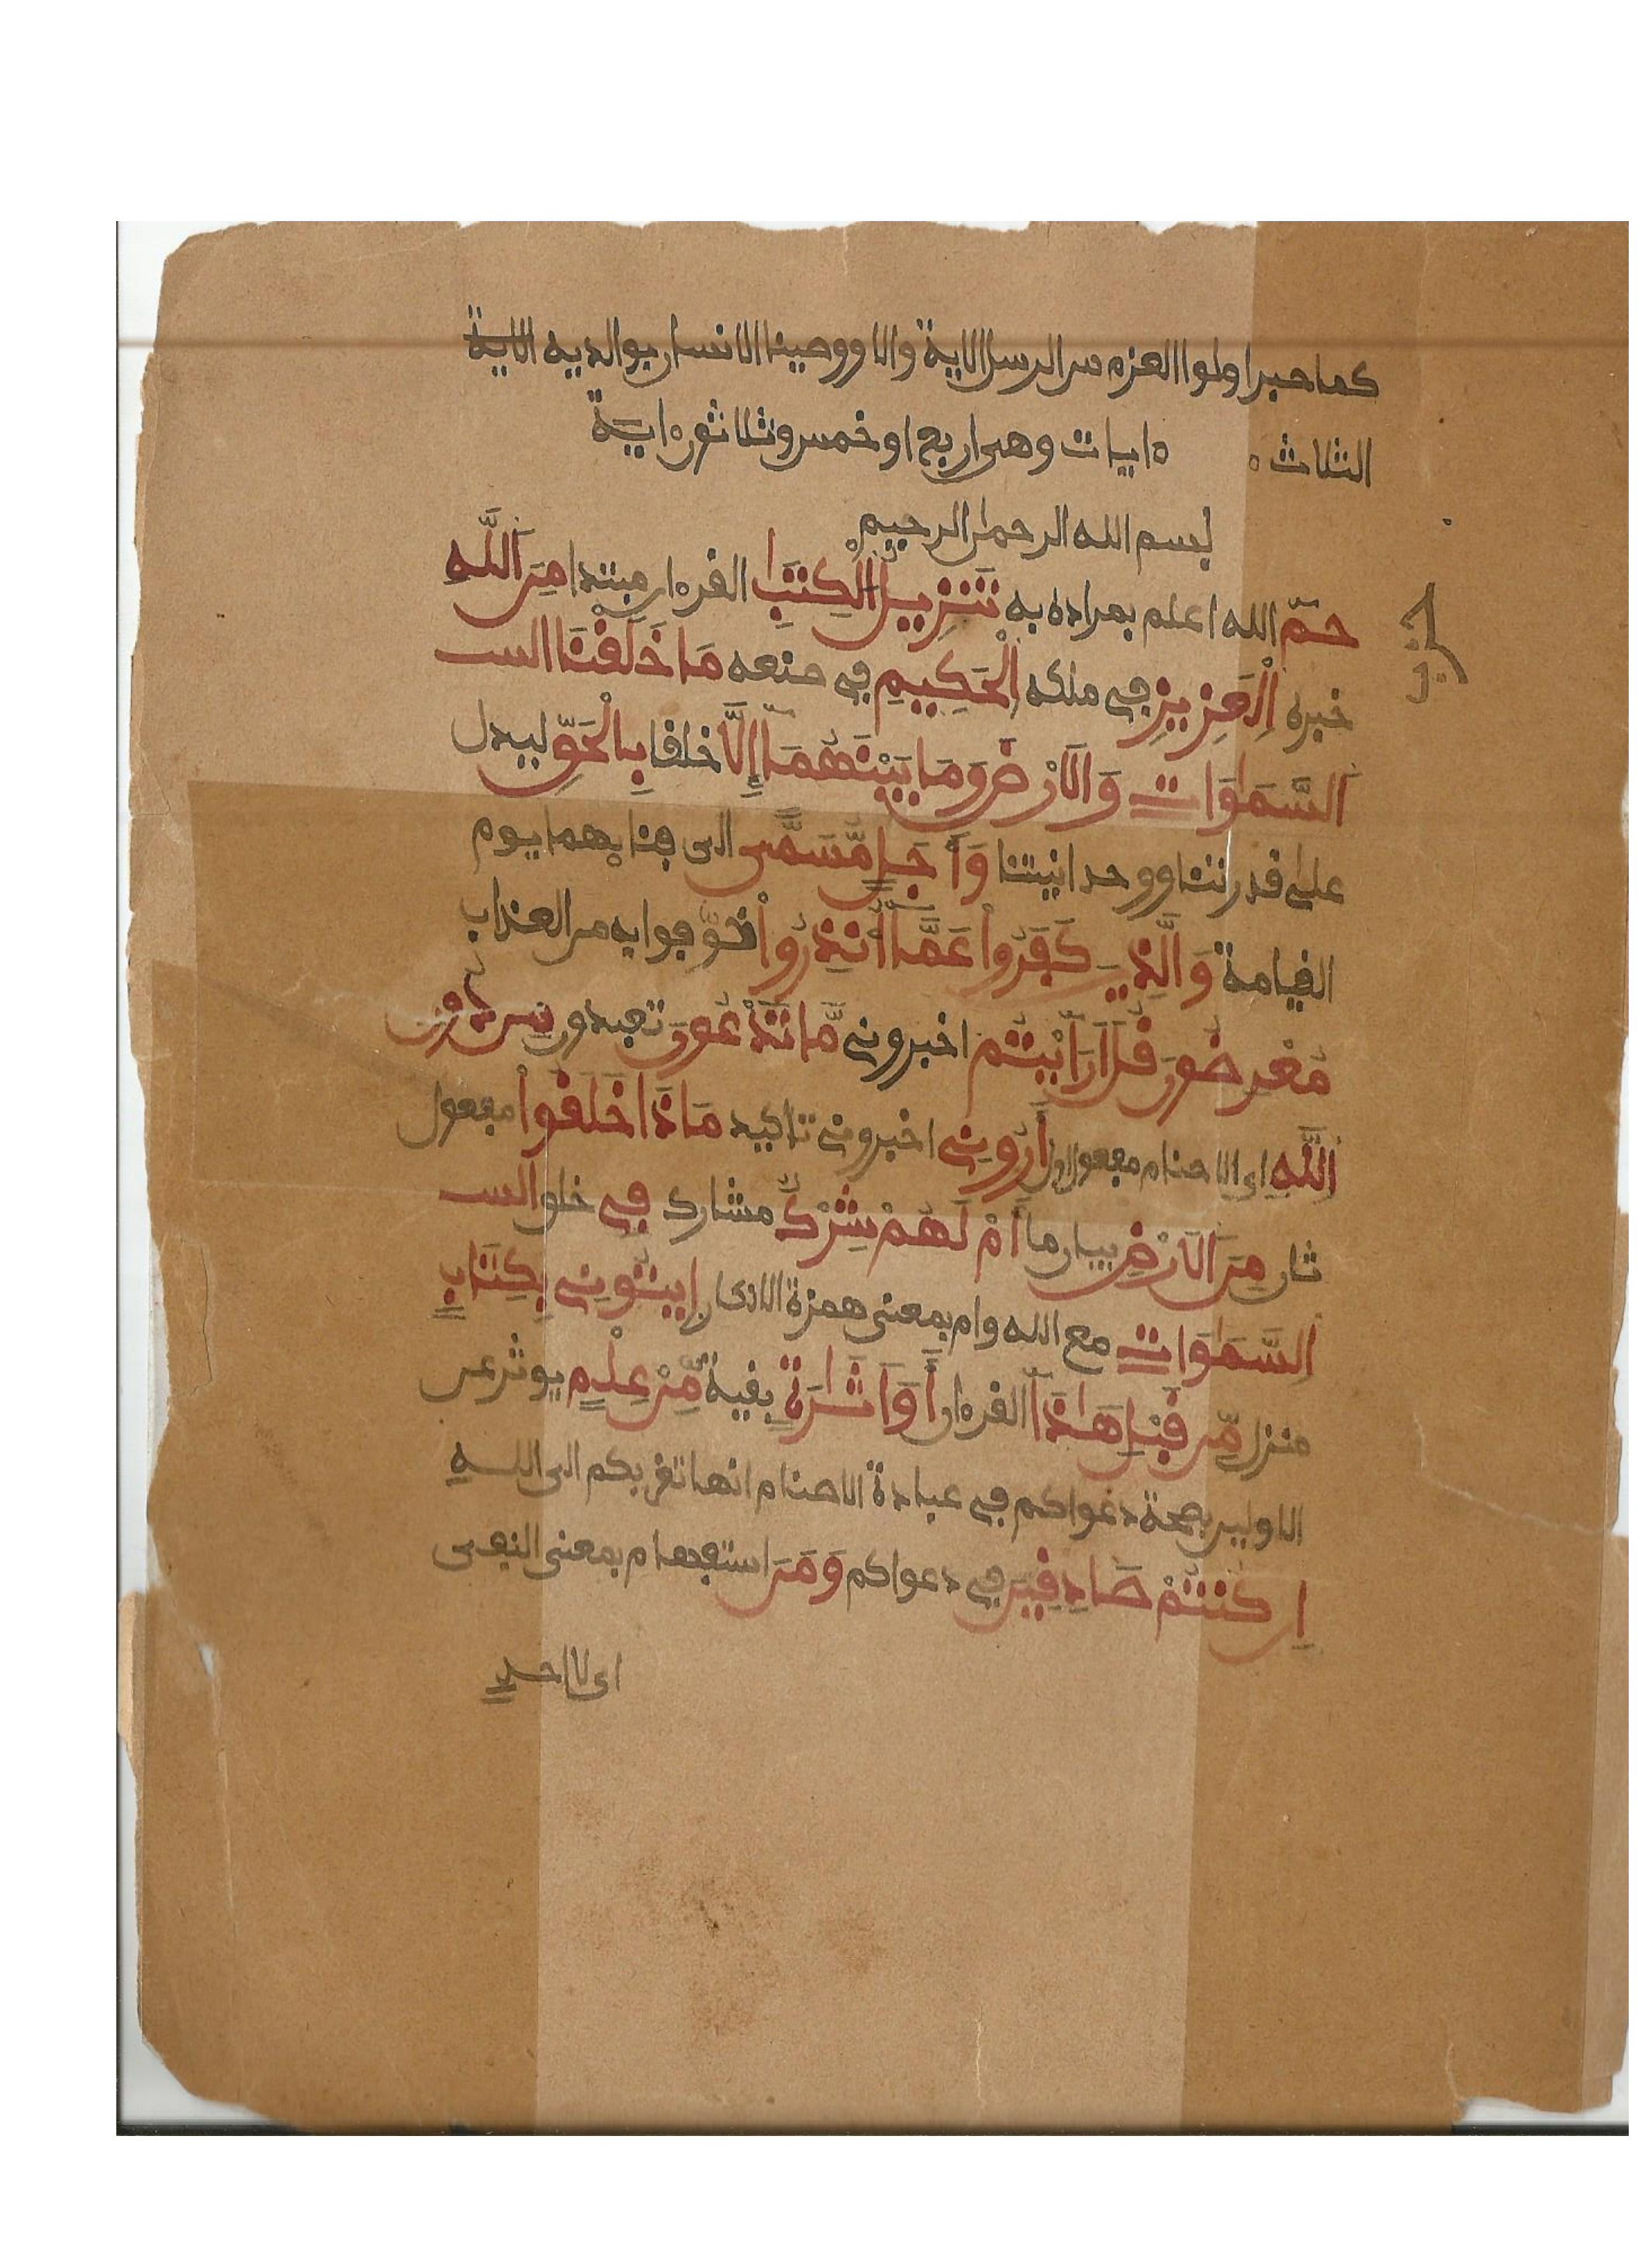 كما صبر اولوا العزم من الرسل الاية والا ووصينا الانسان بوالديه الاية
الثلاث ءايات وهى اربع او خمس وثلاثون ءاية
بسم الله الرحمن الرحيم
حزب
حمٓ الله اعلم بمراده به تَنزِيلُ الْكِتَٰبِ القرءان مبتدا مِنَ اَللَّهِ
خبره اِلْعَزِيزِ في ملكه اِلْحَكِيمِ في صنعه مَا خَلَقْنَا الس
اَلسَّمَٰوَاتِ وَالَارْضَ وَمَا بَيْنَهُمَآ إِلَّا خلقا بِالْحَقِّ ليدل
على قدرتنا ووحدانيتنا وَأَجَلٍ مُّسَمًّى الى فنايهما يوم
القيامة وَالَّذِينَ كَفَرُواْ عَمَّآ أُنذِرُواْ خوفوا به من العذاب
مُعْرِضُونَ قُلَ اَرَآيْتُم اخبروني مَّا تَدْعُونَ تعبدون مِن دُونِ
اِللَّهِ اى الاصنام مفعول اول أَرُونِي اخبروني تاكيد مَاذَا خَلَقُواْ مفعول
ثان مِنَ اَلَارْضِ بيان ما أَمْ لَهُمْ شِرْكٌ مشارك فِي خلق الس
اِلسَّمَٰوَاتِ مع الله وام بمعنى همزة الانكار اِيتُونِي بِكِتَابٍ
منزل مِّن قَبْلِ هَٰذَآ القرءان أَوَ اَثَٰرَةٍ بقية مِّنْ عِلْمٍ يوثر عن
الاولين بصحة دعواكم في عبادة الاصنام انها تقربكم الى اللهِ
إِن كُنتُمْ صَادِقِينَ في دعواكم وَمَنَ استفهام بمعنى النفى
اى لا احد